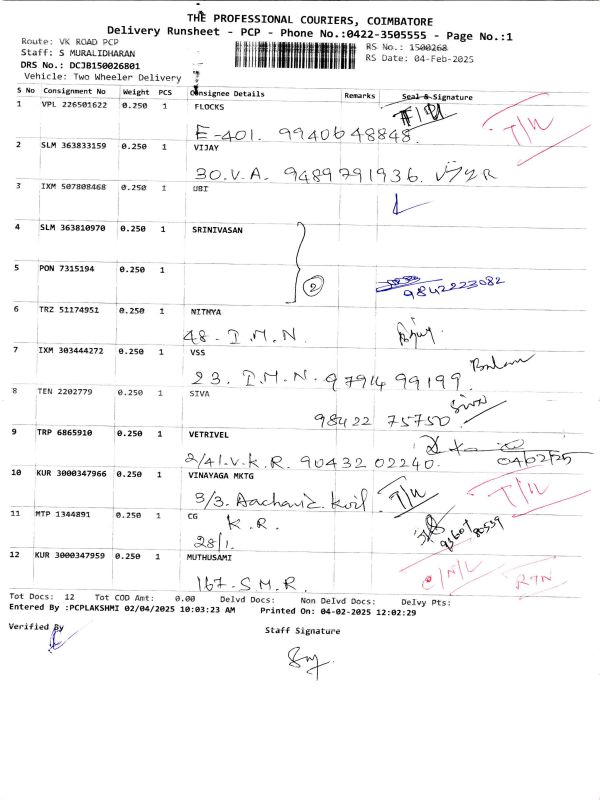 THE PROFESSIONAL COURIERS, COIMBATORE
Delivery Runsheet - PCP - Phone No.:0422-3505555 - Page No.:1
Route: VK ROAD PCP
RS No.: 1500268
Staff: S MURALIDHARAN
RS Date: 04-Feb-2025
DRS No.: DCJB150026801
Vehicle: Two Wheeler Delivery
S No Consignment No Weight PCS Consignee Details Remarks Seal & Signature
1 VPL 226501622 0.250 1 FLOCKS
E-401. 9940648848 T/N
2 SLM 363833159 0.250 1 VIJAY
30.V.A. 9489791936.
3 IXM 507808468 0.250 1 UBI
4 SLM 363810970 0.250 1 SRINIVASAN
5 PON 7315194 0.250 1
2 9842223082
6 TRZ 51174951 0.250 1 NITHYA
48. I.M.N.
7 IXM 303444272 0.250 1 VSS
23. I.M.N. 97914 99199 Balam
8 TEN 2202779 0.250 1 SIVA
98422 75750 Siva
9 TRP 6865910 0.250 1 VETRIVEL
2/41.V.K.R. 90432 02240. 04/02/25
10 KUR 3000347966 0.250 1 VINAYAGA MKTG
3/3. Koil T/N T/N
11 MTP 1344891 0.250 1 CG
K.R.
28/1.
12 KUR 3000347959 0.250 1 MUTHUSAMI
167-S.M.R. C/N/L RTN
Tot Docs: 12 Tot COD Amt: 0.00 Delvd Docs: Non Delvd Docs: Delvy Pts:
Entered By :PCPLAKSHMI 02/04/2025 10:03:23 AM Printed On: 04-02-2025 12:02:29
Verified By
Staff Signature